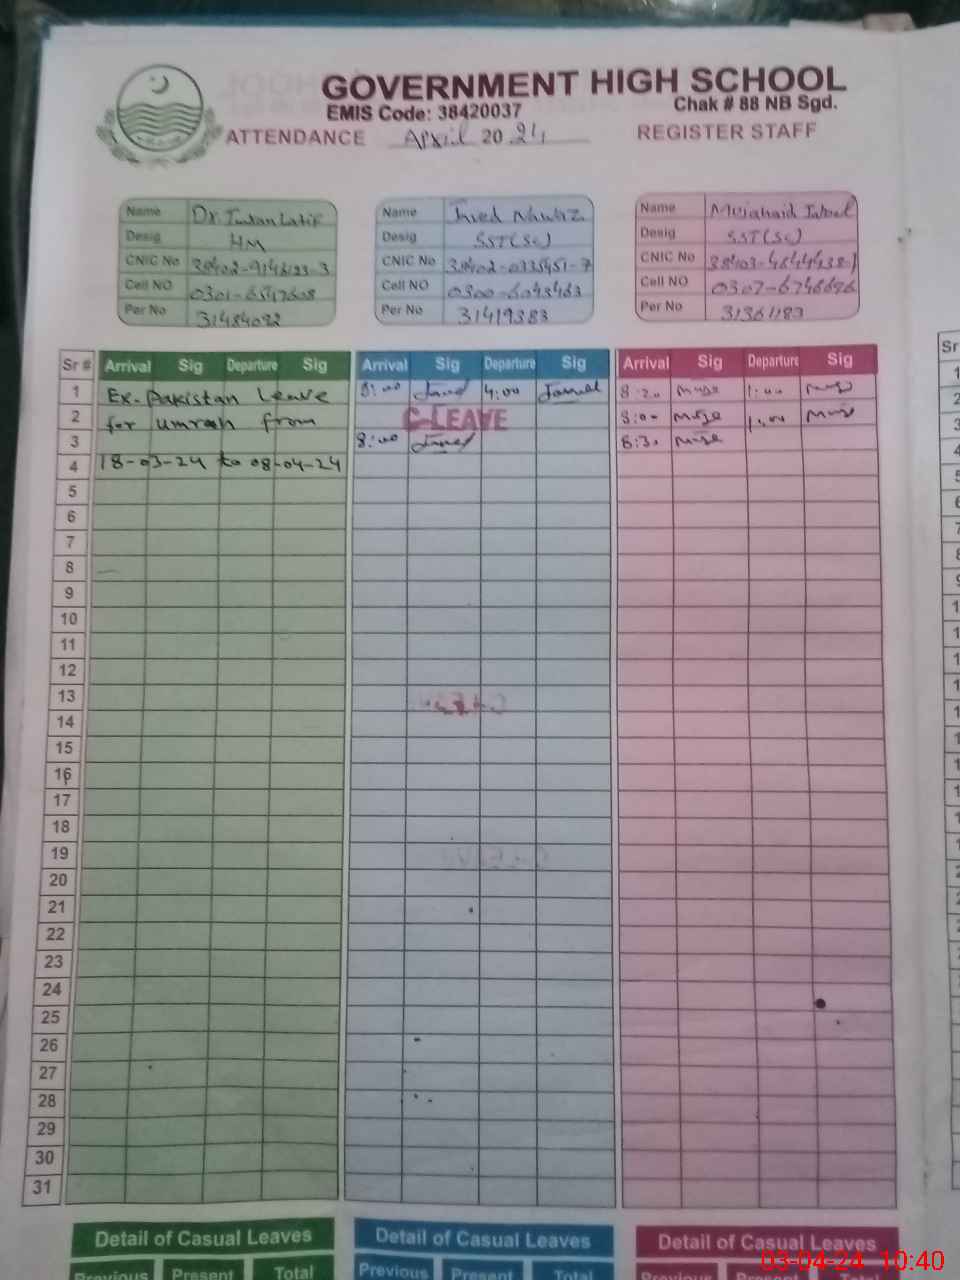 GOVERNMENT HIGH SCHOOL
EMIS Code: 38420037
Chak # 88 NB Sgd.
ATTENDANCE April 20 24 REGISTER STAFF
Name Dr. Latif
Desig HM
CNIC No
Cell NO 0301-6547608
Per No 31484092
Name Nawaz
Desig SST(Sc)
CNIC No 38402-0335451-7
Cell NO 0300-6043463
Per No 31419383
Name
Desig SST(Sc)
CNIC No
Cell NO 0307-6746696
Per No
Sr # Arrival Sig Departure Sig Arrival Sig Departure Sig Arrival Sig Departure Sig Sr
1 Ex-Pakistan Leave 8:00 4:00 8:20 1:00
2 for Umrah from C-LEAVE 8:00 1:00
3 8:00 8:30
4 18-03-24 to 08-04-24
5
6
7
8
9
10
11
12
13
14
15
16
17
18
19
20
21
22
23
24
25
26
27
28
29
30
31
Detail of Casual Leaves Detail of Casual Leaves Detail of Casual Leaves
Previous Present Total Previous Present Total
03-04-24 10:40